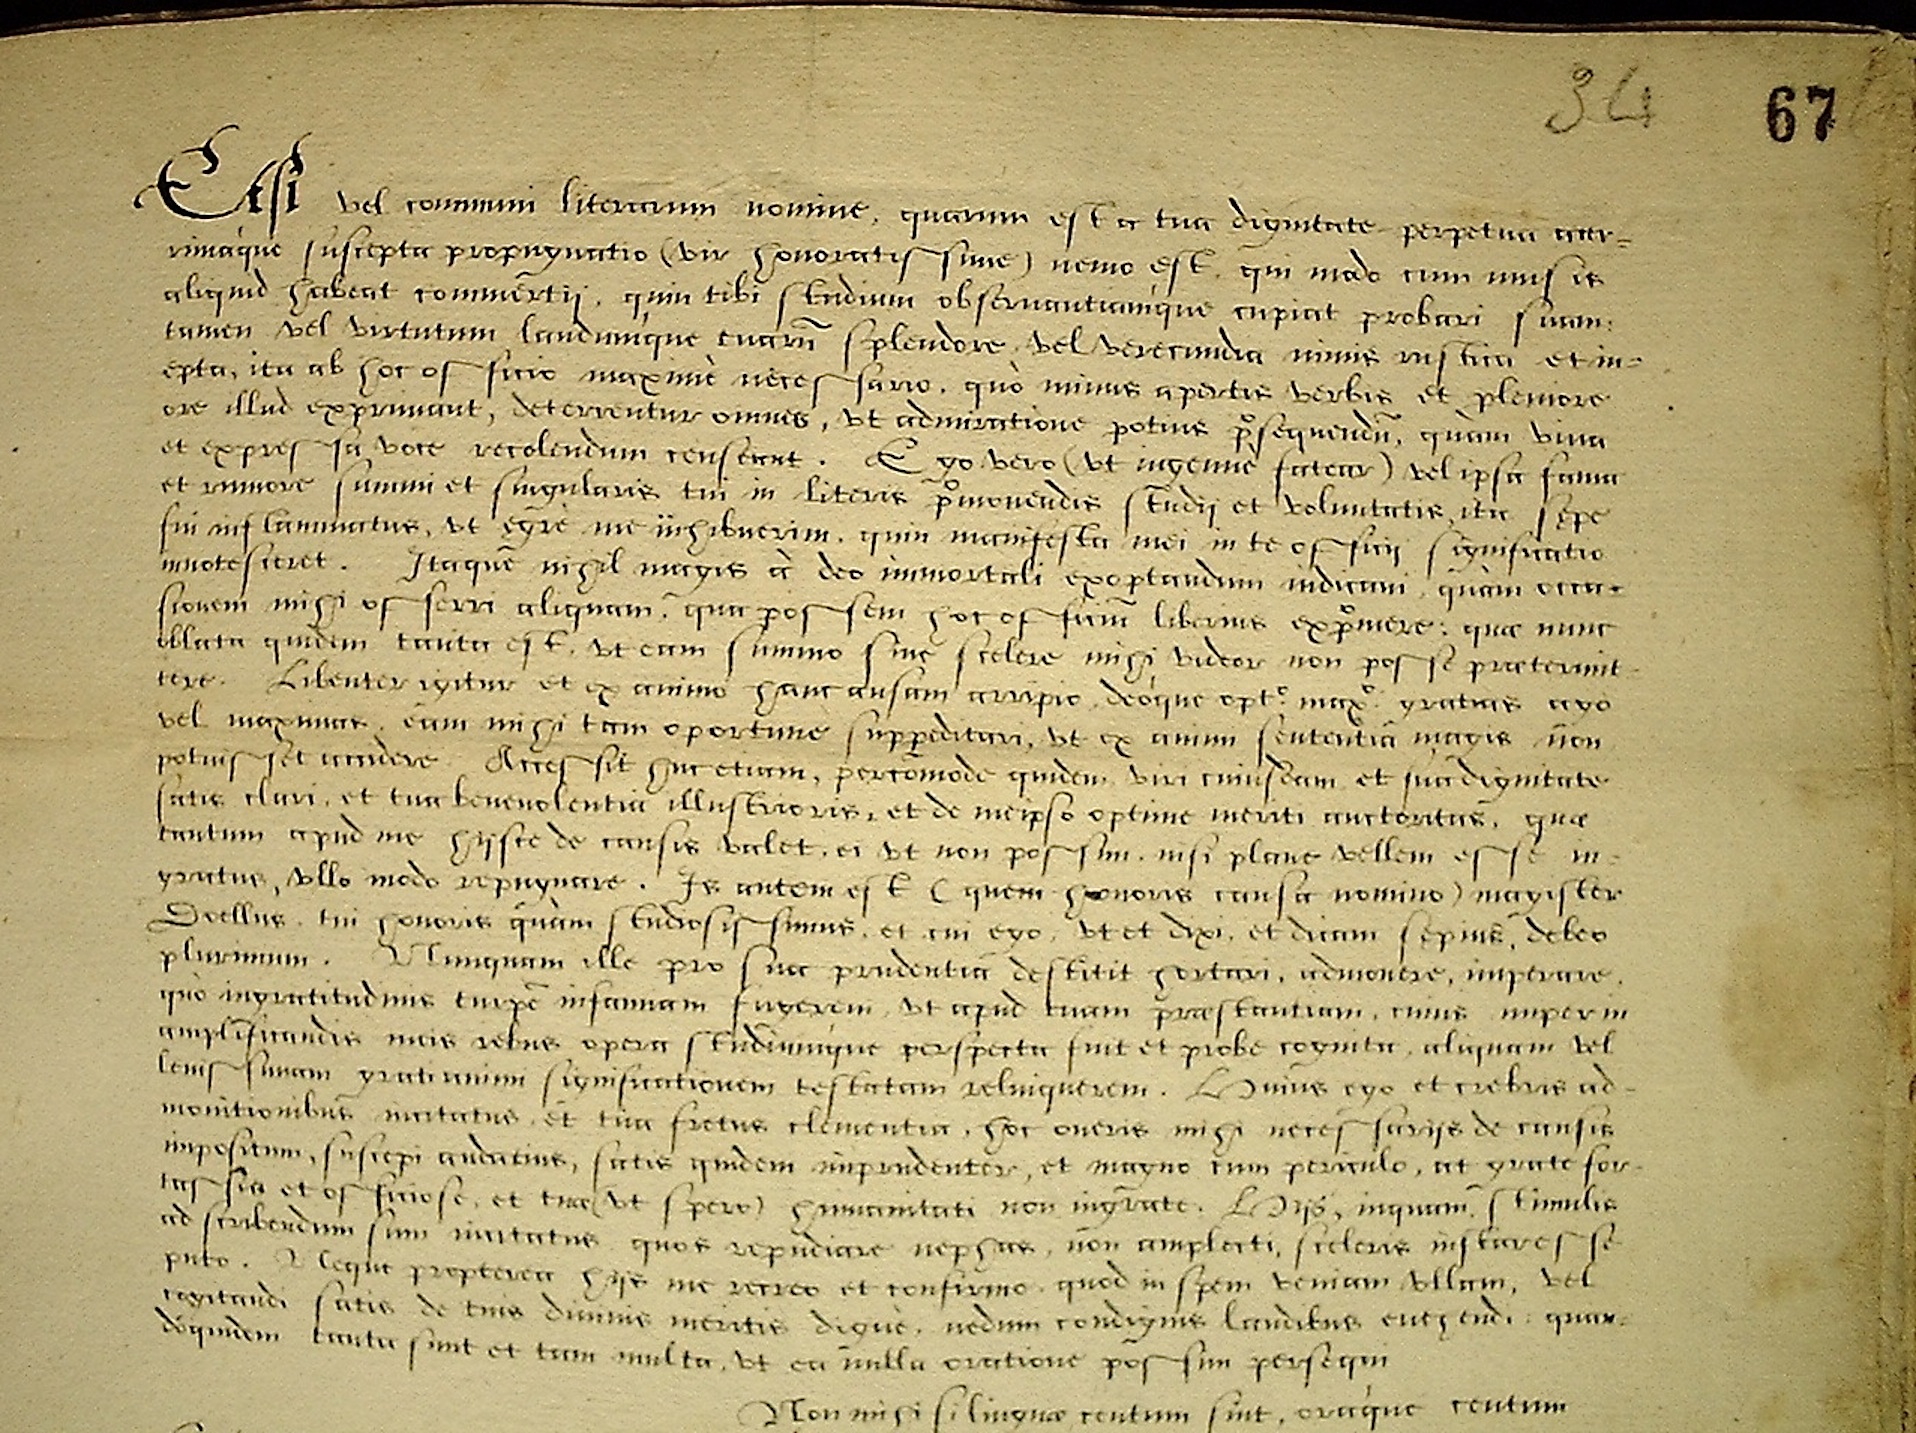 34 67
Etsi vel communi literarum nomine, quarum est a tua dignitate perpetua acer=
rimáque suscepta propugnatio (vir honoratissime) nemo est, qui modo cum musis
aliquid habeat commertij, quin tibi studium obseruantiamque cupiat probari suam:
tamen vel virtutum laudumque tuarũ splendore, vel verecundia nimis rustica et in-
epta, ita ab hoc officio maximè necessario, quò minus apertis verbis et pleniore
ore illud exprimant, deterrentur omnes, vt admiratione potius p̃sequendũ, quàm viua
et expressa voce recolendum censeant. Ego vero (vt ingenuè fatear) vel ipsa fama
et rumore summi et singularis tui in literis p̃mouendis studij et voluntatis, ita sępe
sũ inflammatus, vt ęgrè me inhibuerim, quin manifesta mei in te officij significatio
innotesceret. Itaque nihil magis à deo immortali exoptandum iudicaui, quàm occa-
sionem mihi offerri aliquam, qua possem hoc officiũ liberius exp̃mere: quæ nunc
oblata quidem tanta est, vt eam summo sine scelere mihi videor non posse prætermit-
tere. Libenter igitur et ex animo hanc ansam arripio, deóque opt.° max.° gratias ago
vel maximas, eam mihi tam oportunè suppeditari, vt ex animi sententia magis non
potuisset accidere. Accessit huc etiam, percomode quidem viri cuiusdam et sua dignitate
satis clari, et tua beneuolentia illustrioris, et de meipso optime meriti auctoritas, quæ
tantum apud me hijsce de causis valet, ei vt non possim, nisi plane vellem esse in-
gratus, vllo modo repugnare. Is autem est (quem honoris causa nomino) magister
Duellus, tui honoris quàm studiosissimus, et cui ego, vt et dixi, et dicam sępius, debeo
plurimum. Nunquam ille pro sua prudentia destitit hortari, admonere, imperare,
quò ingratitudinis turpẽ infamiam fugerem, vt apud tuam præstantiam, cuius nuper in
amplificandis meis rebus opera studiumque perspecta fuit et probe cognita, aliquam vel
leuissimam gratianimi significationem testatam relinquerem. Huius ego et crebris ad-
monitionibus incitatus, et tua fretus clementia, hoc oneris mihi necessarijs de causis
impositum, suscepi audacius, satis quidem imprudenter, et magno cum periculo, at grate for-
tassis et officiose, et tuæ (vt spero) humanitati non ingrate. Hijs, inquam, stimulis
ad scribendum sum incitatus, quos repudiare nephas, non amplecti, sceleris instar esse
puto. Neque propterea hijs me recreo et confirmo, quod in spem veniam vllam, vel
cogitandi satis de tuis diuinis meritis dignè, nedum condignis laudibus euehendi: quan-
doquidem tanta sunt et tam multa, vt ea nulla oratione possim persequi
Non mihi si linguæ centum sint, oráque centum